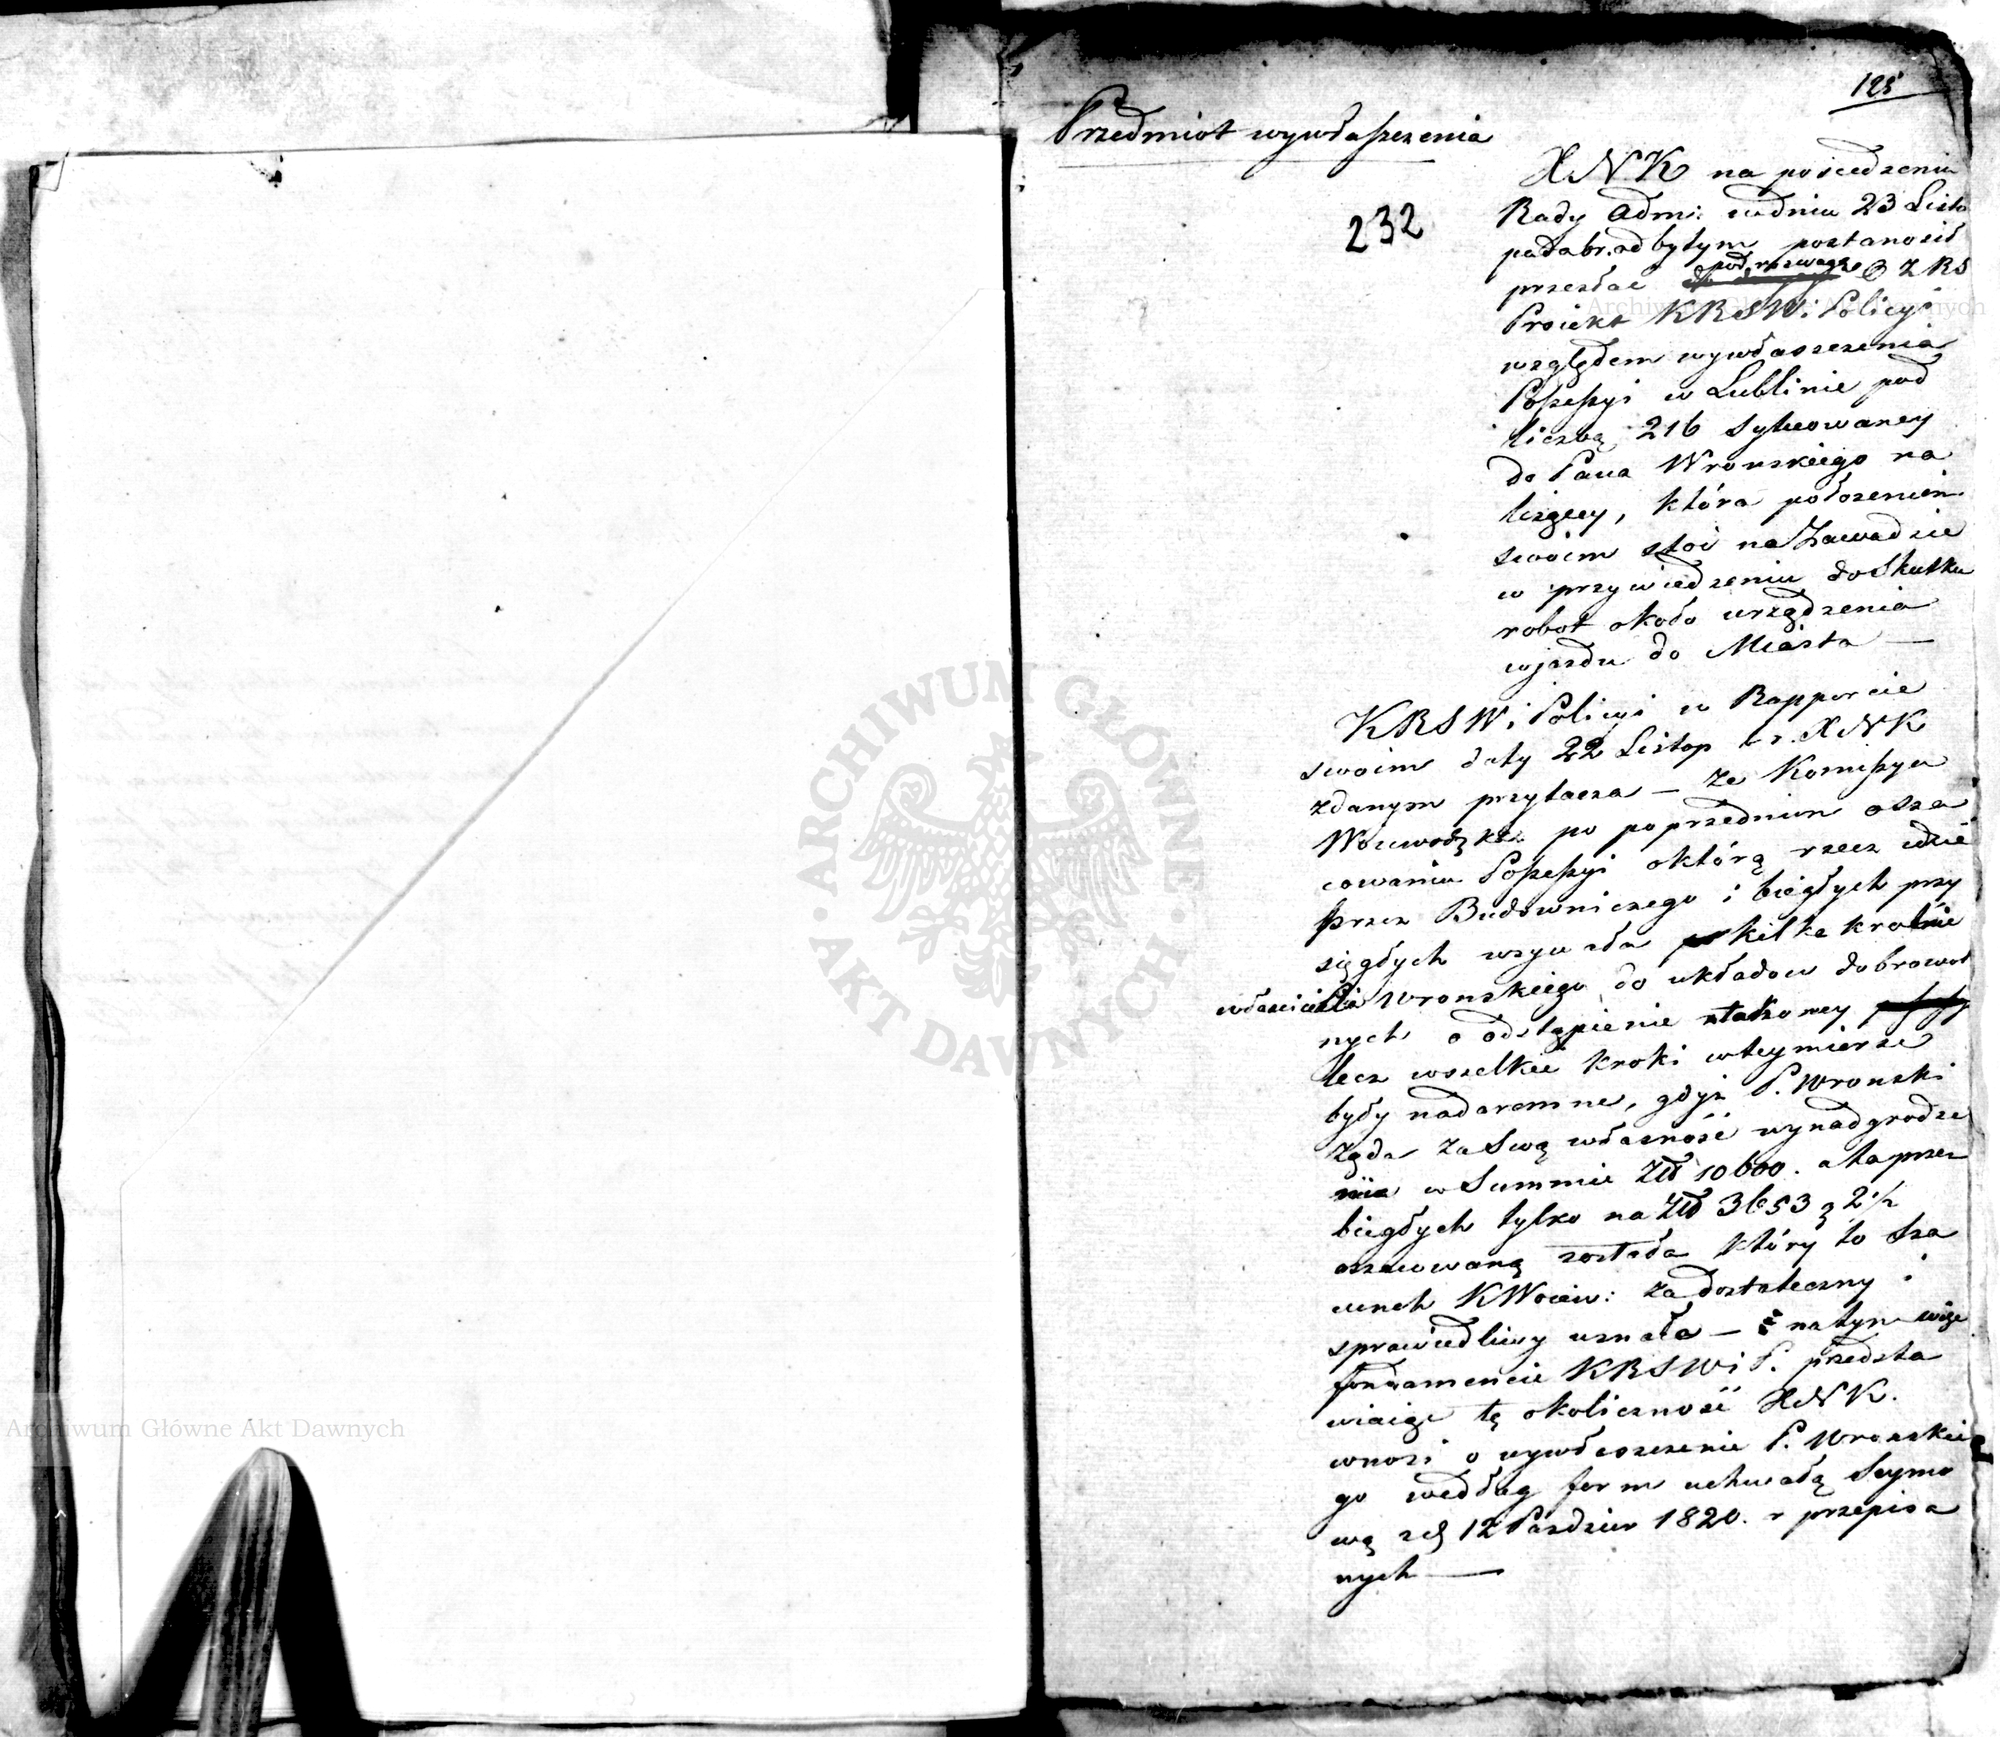 125
Przedmiot wywłaszczenia
232
XNK na posiedzeniu
Rady Adm: w dniu 23 Listo
pada br. odbytym postanowił
przesłać pod rozwagę
Proiekt KRSW i Policyi
względem wywłaszczenia
Possessyi w Lublinie pod
liczbą 216 sytuowaney
do Pana Wronskiego na
leżącey, która położeniem
swoim stoi na Zawadzie
w przywiedzeniu do Skutku
robot około urządzenia
wjazdu do Miasta —
KRSW i Policyi w Rapporcie
swoim daty 22 Listop br. XNK
zdanym przytacza — że Kommissya
Woiewodzka po poprzednim osza
cowaniu Possessyi o którą rzecz idzie
przez Budowniczego i biegłych przy
sięgłych wzywała kilkakrotnie
właściciela Wronskiego do układow dobrowol
nych o odstąpienie takowey
lecz wszelkie kroki w tey mierze
były nadaremne, gdyż P. Wronski
żąda za Swą własność wynadgrodze
nia w Summie Złł 10600. a ta przez
biegłych tylko na Złł 3653 g 2 1/2
oszacowaną została który to Sza
cunek KWoiew: za dostateczny i
sprawiedliwy uznała — na tym więc
fundamencie KRSW i P. przedsta
wiaiąc tę okoliczność XNK.
wnosi o wywłaszczenie P. Wronskie
go według form uchwałą Seymo
wą z d 12 Pazdzier 1820. r przepisa
nych —
Archiwum Główne Akt Dawnych
Archiwum Główne Akt Dawnych
ARCHIWUM GŁÓWNE
AKT DAWNYCH